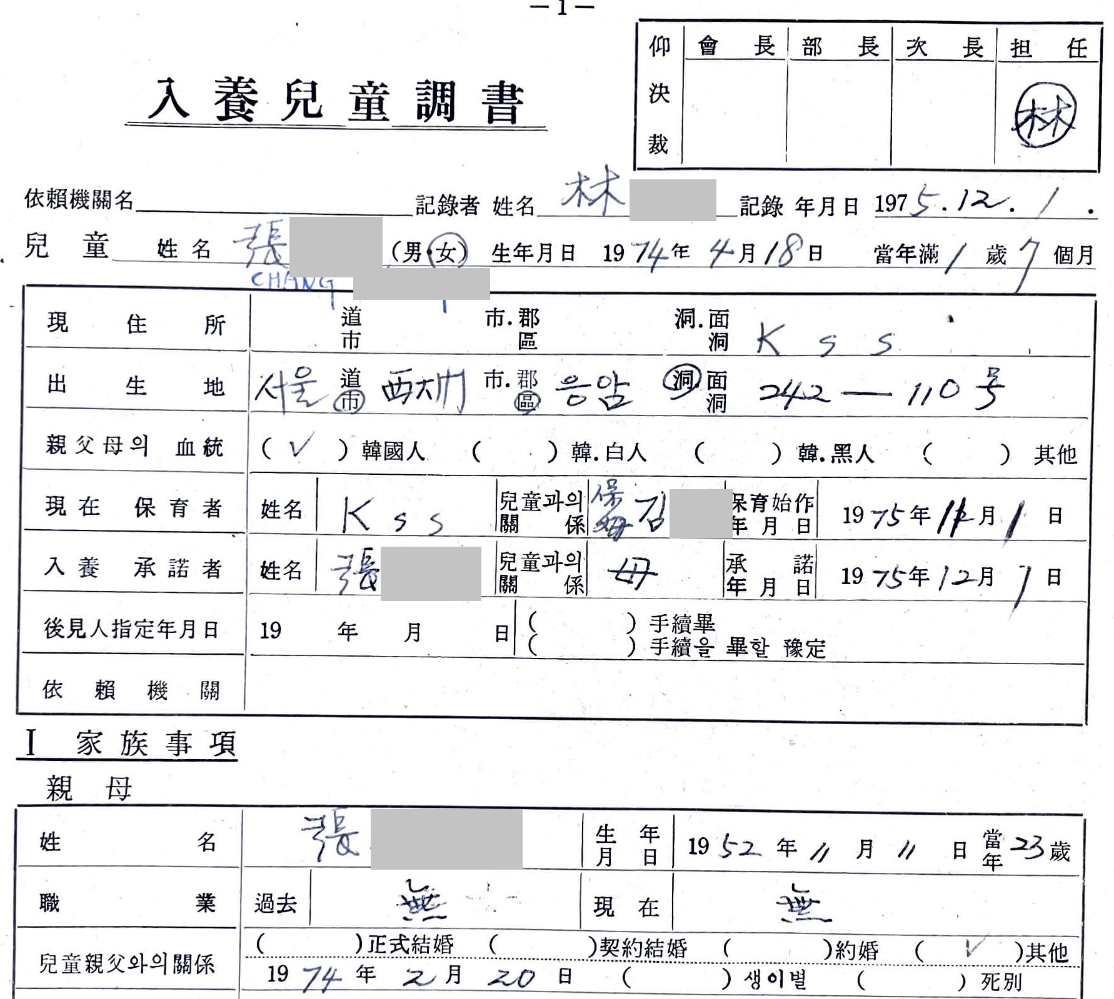 —1—
仰決裁 會長 部長 次長 担任
林
入養兒童調書
依賴機關名 記錄者 姓名 林 記錄 年月日 1975.12.1.
兒童 姓名 張 (男·女) 生年月日 1974年 4月 18日 當年滿 1歲 7個月
CHANG
現住所 道市 市.郡區 洞.面洞 K s s
出生地 서울 道市 西大門 市.郡區 응암 洞.面洞 242—110号
親父母의 血統 (✓)韓國人 ( )韓.白人 ( )韓.黑人 ( )其他
現在 保育者 姓名 K s s 兒童과의 關係 保母 김 保育始作 年月日 1975年 月 1日
入養 承諾者 姓名 張 兒童과의 關係 母 承諾 年月日 1975年 12月 1日
後見人指定年月日 19 年 月 日 ( )手續畢
( )手續을 畢할 豫定
依賴機關
I 家族事項
親母
姓名 張 生年月日 1952年 11月 11日 當年 23歲
職業 過去 無 現在 無
兒童親父와의關係 ( )正式結婚 ( )契約結婚 ( )約婚 (✓)其他
1974年 2月 20日 ( )생이별 ( )死別